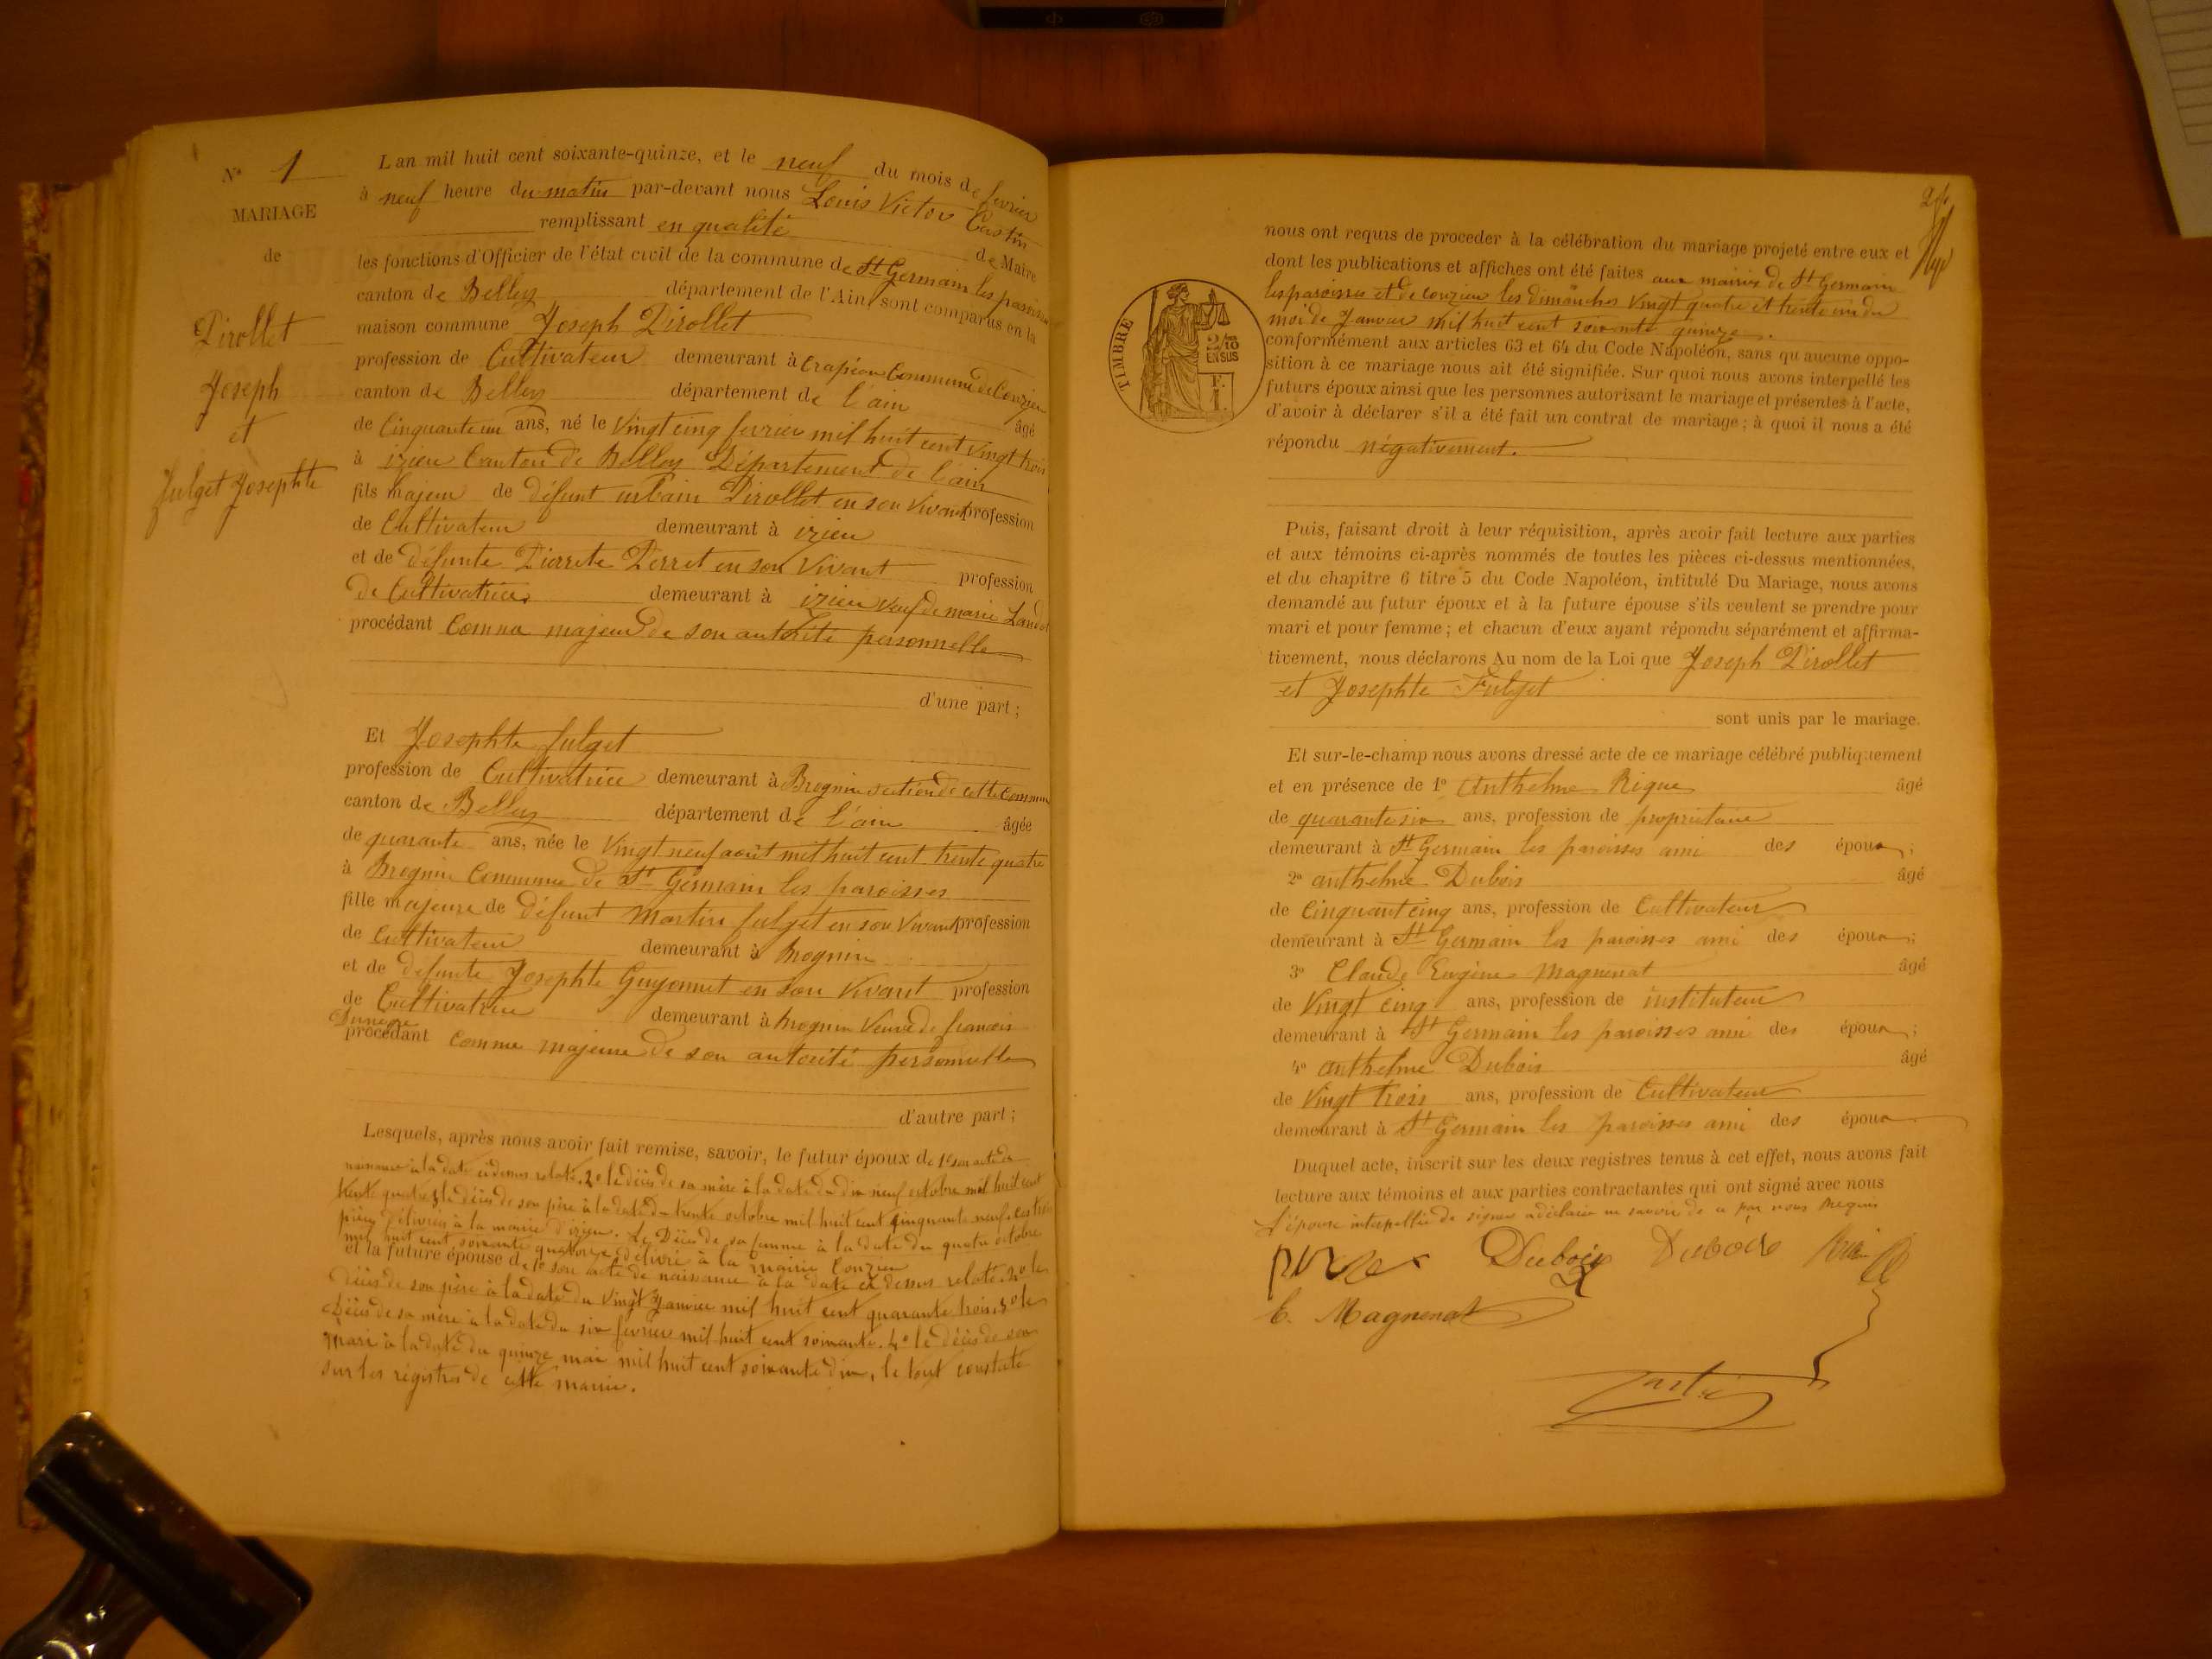 N° 1
MARIAGE
de
Pirollet
Joseph
et
fulget Josephte
L'an mil huit cent soixante-quinze, et le neuf du mois de fevrier
à neuf heure du matin par-devant nous Louis Victor Castin
remplissant en qualité de Maire
les fonctions d'Officier de l'état civil de la commune de St Germain les paroisses
canton de Belley département de l'Ain, sont comparus en la
maison commune Joseph Pirollet
profession de Cultivateur demeurant à Crapéou Commune de Conzieu
canton de Belley département de l'ain
de Cinquante un ans, né le Vingt cinq fevrier mil huit cent vingt trois âgé
à izieu Canton de Belley Département de l'ain
fils majeur de défunt urbain Pirollet en son vivant profession
de Cultivateur demeurant à izieu
et de défunte Pierrete Perret en son Vivant profession
de Cultivatrice demeurant à izieu veuf de marie
procédant Comme majeur de son autorité personnelle
d'une part ;
Et Josephte fulget
profession de Cultivatrice demeurant à Brognin section de cette Commune
canton de Belley département de l'ain âgée
de quarante ans, née le Vingt neuf août mil huit cent trente quatre
à Brognin Commune de St Germain les paroisses
fille majeure de défunt Martin fulget en son Vivant profession
de Cultivateur demeurant à Brognin
et de défunte Josephte Guyonnet en son Vivant profession
de Cultivatrice demeurant à Brognin Veuve de francois
procédant comme majeure de son autorité personnelle
d'autre part ;
Lesquels, après nous avoir fait remise, savoir, le futur époux de 1° son acte de
naissance à la date ci dessus relaté. 2° le décès de sa mère à la date du dix neuf octobre mil huit cent
trente quatre, 3° le décès de son père à la date du trente octobre mil huit cent cinquante neuf, ces trois
pièces délivrées à la mairie d'izieu. Le Décès de sa femme à la date du quatre octobre
mil huit cent soixante quatorze, délivré à la mairie Conzieu
et la future épouse de 1° son acte de naissance à la date ci dessus relaté. 2° le
décès de son père à la date du Vingt Janvier mil huit cent quarante trois, 3° le
décès de sa mère à la date du six fevrier mil huit cent soixante. 4° le décès de son
mari à la date du quinze mai mil huit cent soixante dix, le tout constaté
sur les régistres de cette mairie.
TIMBRE
2/10
EN SUS
F.
1.
nous ont requis de proceder à la célébration du mariage projeté entre eux et
dont les publications et affiches ont été faites aux mairies de St Germain
les paroisses et de conzieu les dimanches Vingt quatre et trente un du
moi de Janvier mil huit cent soixante quinze.
conformément aux articles 63 et 64 du Code Napoléon, sans qu'aucune oppo-
sition à ce mariage nous ait été signifiée. Sur quoi nous avons interpellé les
futurs époux ainsi que les personnes autorisant le mariage et présentes à l'acte,
d'avoir à déclarer s'il a été fait un contrat de mariage ; à quoi il nous a été
répondu négativement.
Puis, faisant droit à leur réquisition, après avoir fait lecture aux parties
et aux témoins ci-après nommés de toutes les pièces ci-dessus mentionnées,
et du chapitre 6 titre 5 du Code Napoléon, intitulé Du Mariage, nous avons
demandé au futur époux et à la future épouse s'ils veulent se prendre pour
mari et pour femme ; et chacun d'eux ayant répondu séparément et affirma-
tivement, nous déclarons Au nom de la Loi que Joseph Pirollet
et Josephte Fulget
sont unis par le mariage.
Et sur-le-champ nous avons dressé acte de ce mariage célébré publiquement
et en présence de 1° Anthelme Rique âgé
de quarante six ans, profession de propriétaire
demeurant à St Germain les paroisses ami des époux ;
2° anthelme Dubois âgé
de Cinquant cinq ans, profession de Cultivateur
demeurant à St Germain les paroisses ami des époux ;
3° Claude Eugène Magnenat âgé
de Vingt cinq ans, profession de instituteur
demeurant à St Germain les paroisses ami des époux ;
4° anthelme Dubois âgé
de Vingt trois ans, profession de Cultivateur
demeurant à St Germain les paroisses ami des époux
Duquel acte, inscrit sur les deux registres tenus à cet effet, nous avons fait
lecture aux témoins et aux parties contractantes qui ont signé avec nous
L'épouse interpellée de signer a déclaré ne savoir de ce par nous Requis
Dubois Dubois
C. Magnenat
Castin